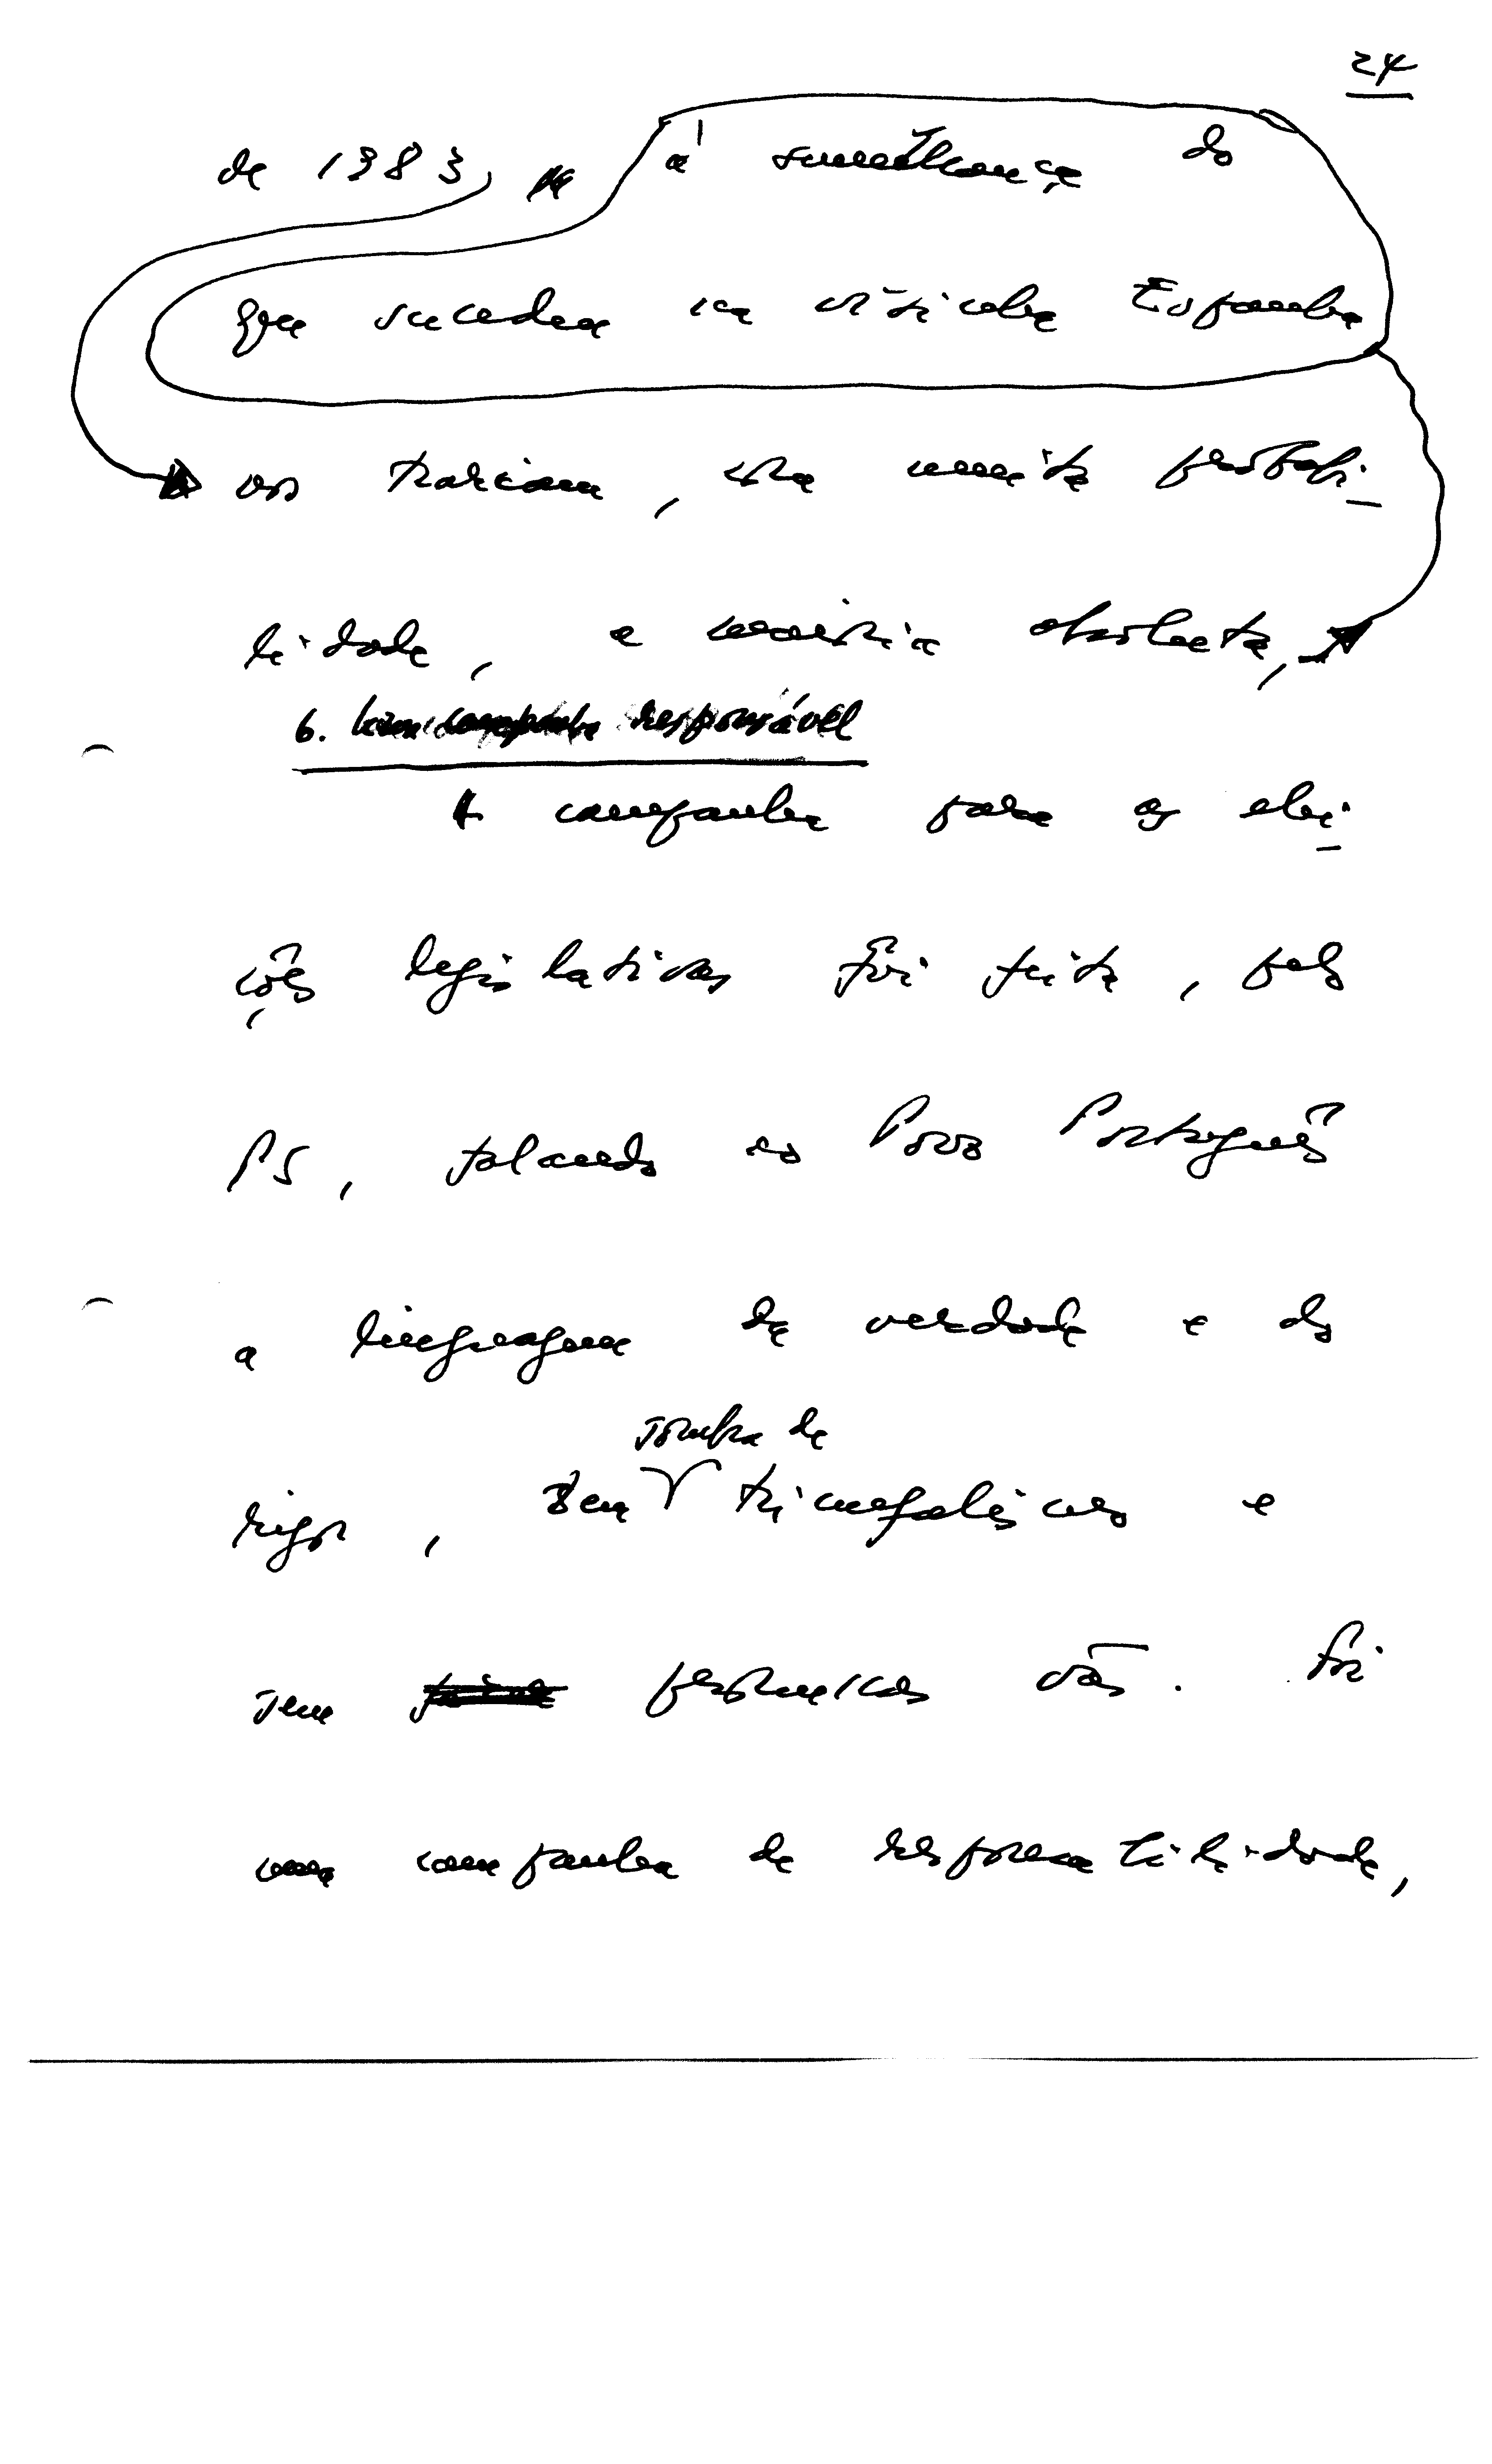 24
de 1983, à semelhança do
que sucedeu na vizinha Espanha
nos trariam, com muita probabi-
lidade, a maioria absoluta,
6. Uma campanha responsável
A campanha para as elei-
ções legislativas foi feita, pelo
PS, falando ao Povo Português
a linguagem da verdade e do
sombra de
rigor, sem triunfalismos e
sem promessas vãs. Foi
uma campanha de responsabilidade,